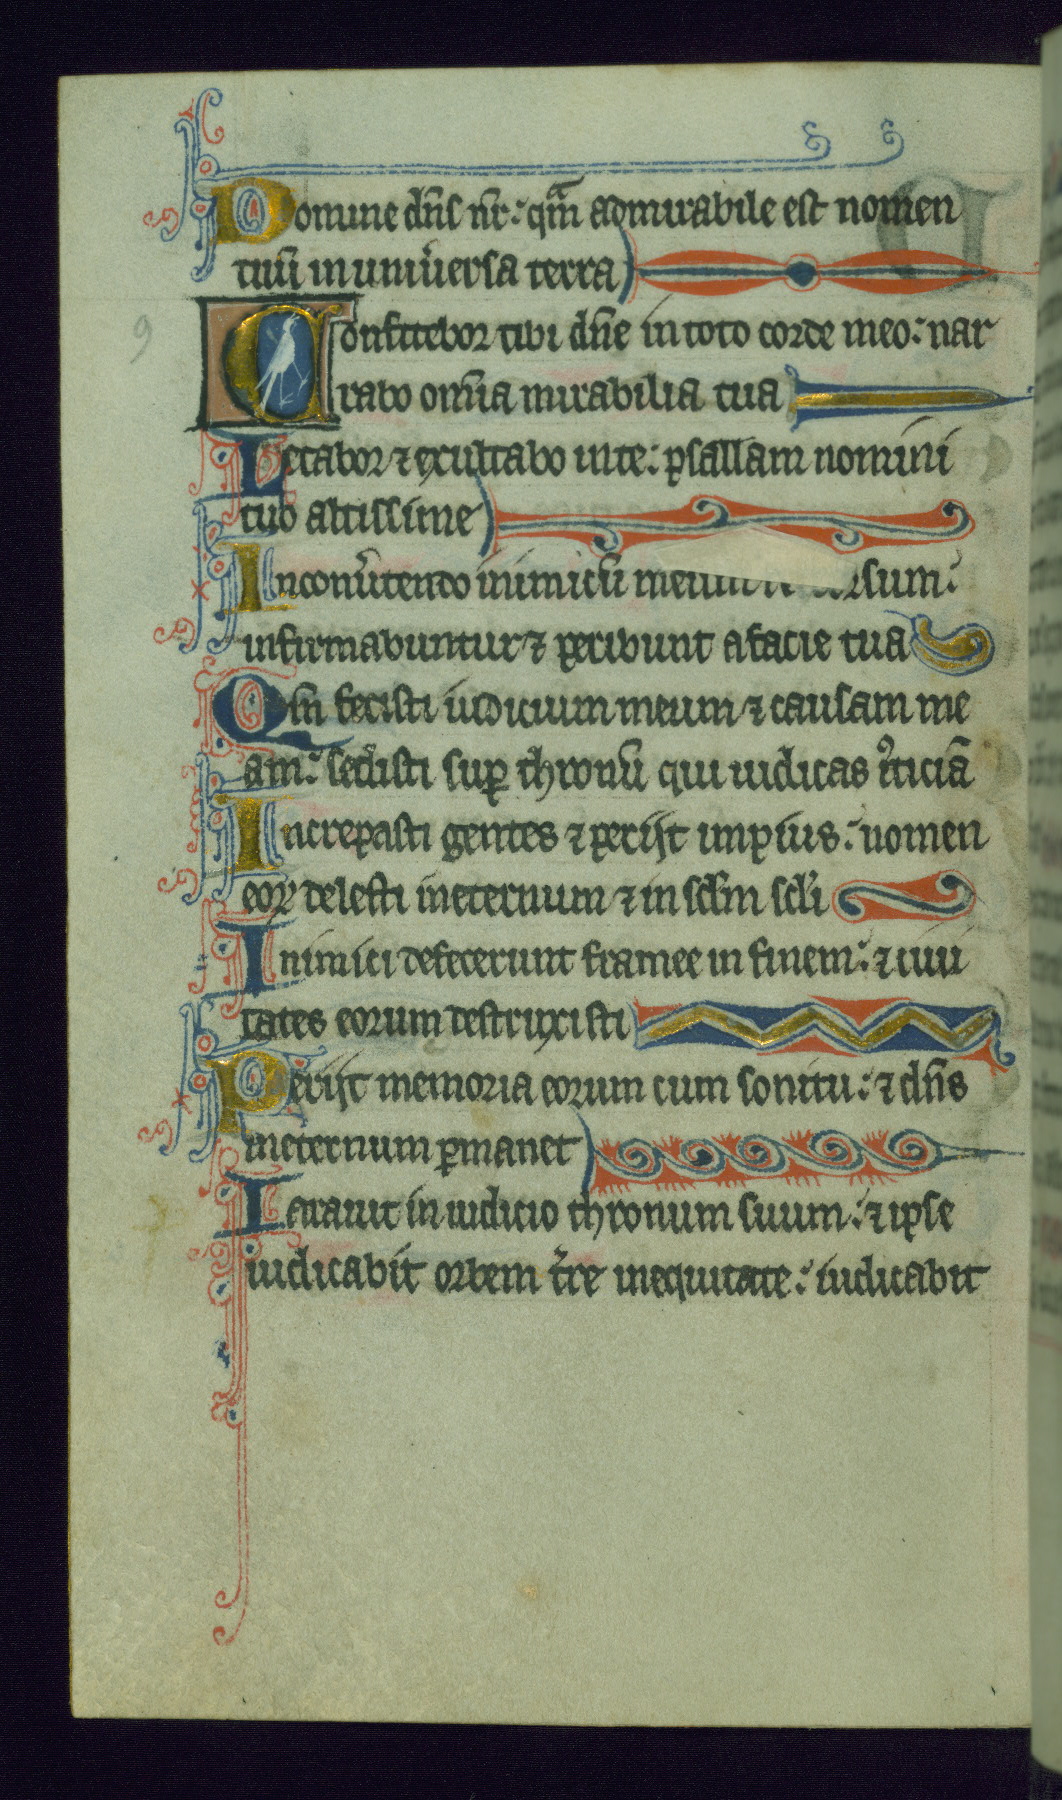 Domine dn̄s nr̄: qm̄ admirabile est nomen
tuū in uniu̾ersa terra
9
Confitebor tibi dn̄e in toto corde meo: nar
rabo om̄ia mirabilia tua
Letabor ⁊ exultabo in te: psallam nomini
tuo altissime
In conu̾tendo inimicū meum sum:
infirmabuntur ⁊ peribunt a facie tua
Qm̄ fecisti iudicium meum ⁊ causam me
am: sedisti suꝑ thronū qui iudicas iu̾ticiā
Increpasti gentes ⁊ periit impius: nomen
eoꝝ delesti in eternum ⁊ in sclm̄ scli̾
Inimici defecerunt framee in finem: ⁊ ciui
tates eorum destruxisti
Periit memoria eorum cum sonitu: ⁊ dn̄s
in eternum ꝑmanet
Parauit in iudicio thronum suum: ⁊ ipse
iudicabit orbem tr̾re in equitate: iudicabit